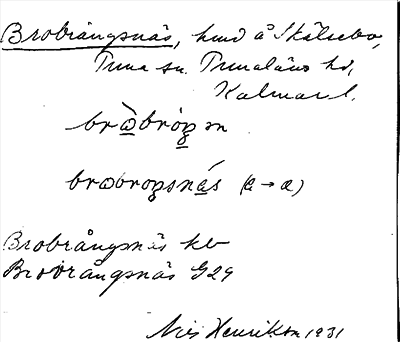 Brobrångsnäs, hmd å Skälsebo,
Tuna sn. Tunaläns hd,
Kalmar l.
brὼbróŋ m
brωbroŋsnás (a→æ)
Brobrångsnäs kb
Brobrångsnäs G29
Nils Henrikson 1931